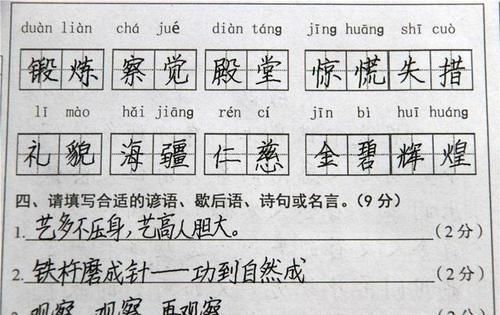 duàn liàn chá jué diàn táng jīng huāng shī cuò
锻炼 察觉 殿堂 惊慌失措
lǐ mào hǎi jiāng rén cí jīn bì huī huáng
礼貌 海疆 仁慈 金碧辉煌
四、请填写合适的谚语、歇后语、诗句或名言。(9分)
1. 艺多不压身,艺高人胆大。(2分)
2. 铁杵磨成针——功到自然成(2分)
3 观察、观察、再观察